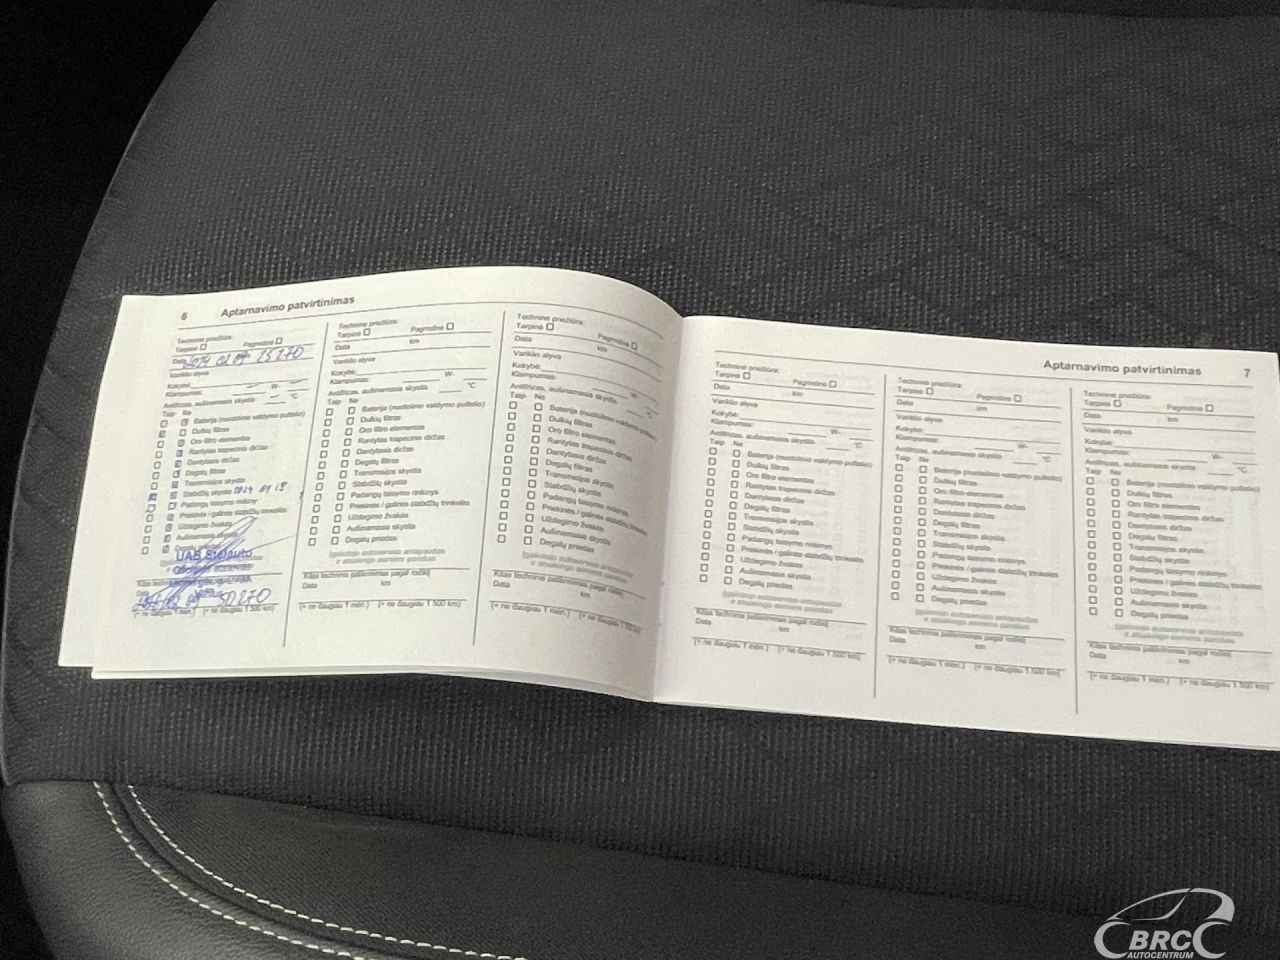 6 Aptarnavimo patvirtinimas
Techninė priežiūra:
Tarpinė Pagrindinė
Data 2024 02 09 25270
Variklio alyva
Kokybė: W-
Klampumas:
Antifrizas, aušinamasis skystis °C
Taip Ne
Baterija (nuotolinio valdymo pultelio)
Dulkių filtras
Oro filtro elementas
Rantytas trapecinis diržas
Dantytasis diržas
Degalų filtras
Transmisijos skystis
Stabdžių skystis
Padangų taisymo rinkinys
Priekinės / galinės stabdžių trinkelės
Uždegimo žvakės
Aušinamasis skystis
UAB
Kitas techninis patikrinimas pagal rodiklį
Data
50270
(+ ne daugiau 1 mėn.) (+ ne daugiau 1 500 km)
Techninė priežiūra:
Tarpinė Pagrindinė
Data km
Variklio alyva
Kokybė: W-
Klampumas:
Antifrizas, aušinamasis skystis °C
Taip Ne
Baterija (nuotolinio valdymo pultelio)
Dulkių filtras
Oro filtro elementas
Rantytas trapecinis diržas
Dantytasis diržas
Degalų filtras
Transmisijos skystis
Stabdžių skystis
Padangų taisymo rinkinys
Priekinės / galinės stabdžių trinkelės
Uždegimo žvakės
Aušinamasis skystis
Degalų priedas
Įgaliotojo autoserviso antspaudas
ir atsakingo asmens parašas
Kitas techninis patikrinimas pagal rodiklį
Data km
(+ ne daugiau 1 mėn.) (+ ne daugiau 1 500 km)
Techninė priežiūra:
Tarpinė Pagrindinė
Data km
Variklio alyva
Kokybė: W-
Klampumas:
Antifrizas, aušinamasis skystis °C
Taip Ne
Baterija (nuotolinio valdymo pultelio)
Dulkių filtras
Oro filtro elementas
Rantytas trapecinis diržas
Dantytasis diržas
Degalų filtras
Transmisijos skystis
Stabdžių skystis
Padangų taisymo rinkinys
Priekinės / galinės stabdžių trinkelės
Uždegimo žvakės
Aušinamasis skystis
Degalų priedas
Įgaliotojo autoserviso antspaudas
ir atsakingo asmens parašas
Kitas techninis patikrinimas pagal rodiklį
Data km
(+ ne daugiau 1 mėn.) (+ ne daugiau 1 500 km)
Aptarnavimo patvirtinimas 7
Techninė priežiūra:
Tarpinė Pagrindinė
Data km
Variklio alyva
Kokybė: W-
Klampumas:
Antifrizas, aušinamasis skystis °C
Taip Ne
Baterija (nuotolinio valdymo pultelio)
Dulkių filtras
Oro filtro elementas
Rantytas trapecinis diržas
Dantytasis diržas
Degalų filtras
Transmisijos skystis
Stabdžių skystis
Padangų taisymo rinkinys
Priekinės / galinės stabdžių trinkelės
Uždegimo žvakės
Aušinamasis skystis
Degalų priedas
Įgaliotojo autoserviso antspaudas
ir atsakingo asmens parašas
Kitas techninis patikrinimas pagal rodiklį
Data km
(+ ne daugiau 1 mėn.) (+ ne daugiau 1 500 km)
Techninė priežiūra:
Tarpinė Pagrindinė
Data km
Variklio alyva
Kokybė: W-
Klampumas:
Antifrizas, aušinamasis skystis °C
Taip Ne
Baterija (nuotolinio valdymo pultelio)
Dulkių filtras
Oro filtro elementas
Rantytas trapecinis diržas
Dantytasis diržas
Degalų filtras
Transmisijos skystis
Stabdžių skystis
Padangų taisymo rinkinys
Priekinės / galinės stabdžių trinkelės
Uždegimo žvakės
Aušinamasis skystis
Degalų priedas
Įgaliotojo autoserviso antspaudas
ir atsakingo asmens parašas
Kitas techninis patikrinimas pagal rodiklį
Data km
(+ ne daugiau 1 mėn.) (+ ne daugiau 1 500 km)
Techninė priežiūra:
Tarpinė Pagrindinė
Data km
Variklio alyva
Kokybė: W-
Klampumas:
Antifrizas, aušinamasis skystis °C
Taip Ne
Baterija (nuotolinio valdymo pultelio)
Dulkių filtras
Oro filtro elementas
Rantytas trapecinis diržas
Dantytasis diržas
Degalų filtras
Transmisijos skystis
Stabdžių skystis
Padangų taisymo rinkinys
Priekinės / galinės stabdžių trinkelės
Uždegimo žvakės
Aušinamasis skystis
Degalų priedas
Įgaliotojo autoserviso antspaudas
ir atsakingo asmens parašas
Kitas techninis patikrinimas pagal rodiklį
Data km
(+ ne daugiau 1 mėn.) (+ ne daugiau 1 500 km)
BRC
AUTOCENTRUM